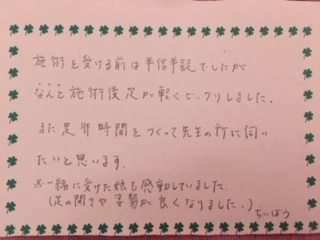 施術を受ける前は半信半疑でしたが
なんと施術後足が軽くビックリしました。
また是非時間をつくって先生の所に伺い
たいと思います。
※一緒に受けた娘も感動していました。
(足の開きや姿勢が良くなりました。)
ちいぼう